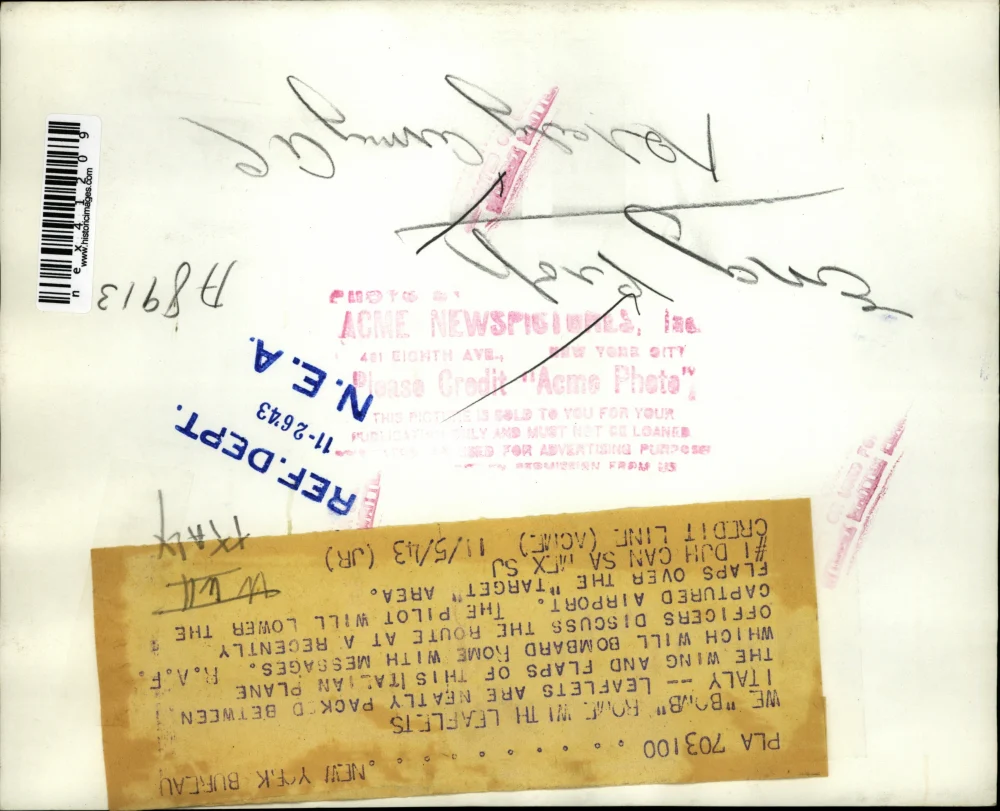 PLA 703100 . . . . . . . . . NEW YORK BUREAU
WE "BOMB" ROME WITH LEAFLETS
ITALY -- LEAFLETS ARE NEATLY PACKED BETWEEN
THE WING AND FLAPS OF THIS ITALIAN PLANE
WHICH WILL BOMBARD ROME WITH MESSAGES. R.A.F.
OFFICERS DISCUSS THE ROUTE AT A RECENTLY
CAPTURED AIRPORT. THE PILOT WILL LOWER THE
FLAPS OVER THE "TARGET" AREA.
#1 DJH CAN SA MEX SJ
CREDIT LINE (ACME) 11/5/43 (JR)
W W II
Italy
REF. DEPT.
11-2643
N.E.A.
PHOTO BY
ACME NEWSPICTURES, Inc.
461 EIGHTH AVE., NEW YORK CITY
Please Credit "Acme Photo",
THIS PICTURE IS SOLD TO YOU FOR YOUR
PUBLICATION ONLY AND MUST NOT BE LOANED
USED FOR ADVERTISING PURPOSES
PERMISSION FROM US
A8913
nex41209
www.historicimages.com
Prop